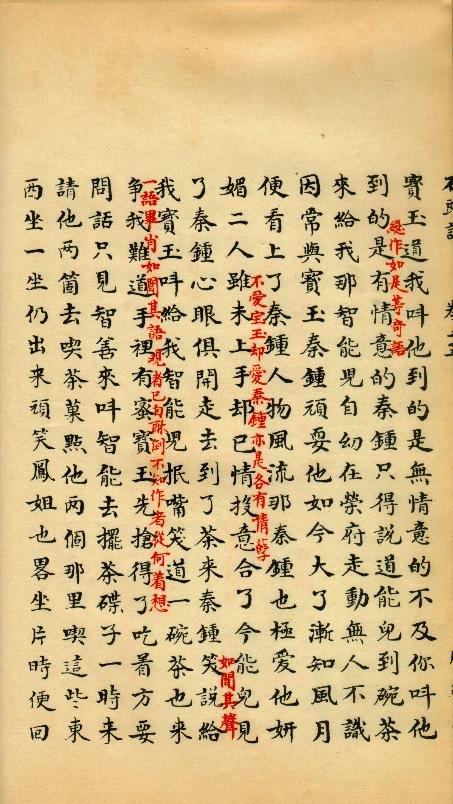 寳玉道我呌他到的是無情意的不及你呌他
總作如是等奇語
到的是有情意的秦鍾只得說道能兒到碗茶
來給我那智能児自幼在榮府走動無人不識
因常與寳玉秦鍾頑耍他如今大了漸知風月
便看上了秦鍾人物風流那秦鍾也極愛他妍
不愛宝玉却愛秦鍾亦是各有情孽
媚二人雖未上手却已情投意合了今能兒見
如聞其聲
了秦鍾心眼俱開走去到了茶來秦鍾笑說給
我寳玉呌給我智能児抿嘴笑道一碗茶也来
一語畢肖如聞其語观者已自酥倒不知作者從何着想
争我難道手裡有蜜寳玉先搶得了吃着方要
問話只見智善來呌智能去擺茶碟子一時来
請他两箇去喫茶菓點他两個那里喫這些東
西坐一坐仍出来頑笑鳳姐也畧坐片時便回